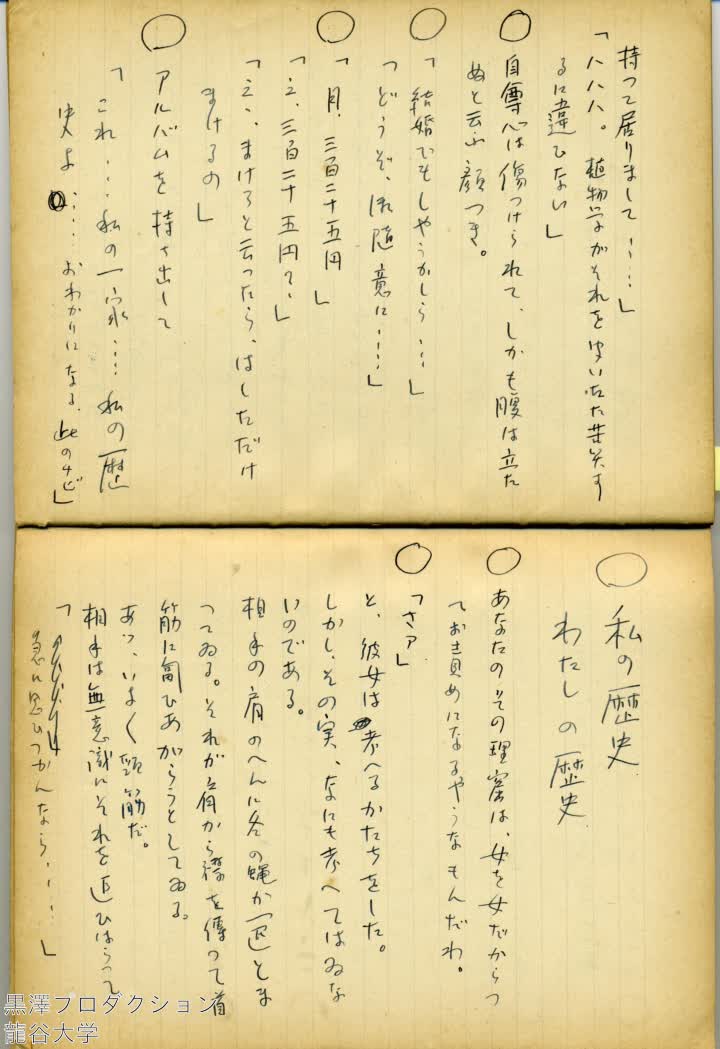 持つて居りまして……」
「ハハハ。植物学がそれを
るに違ひない」
○自尊心は傷つけられて、しかも腹は立た
ぬと云ふ顔つき。
○「結婚でもしやうかしら……」
「どうぞ、御随意に……」
○「月、三百二十五円」
「え、三百二十五円?」
「え、まけろと云つたら、はしただけ
まけるの」
○アルバムを持ち出して
「これ……私の一家……私の歴
史よ……おわかりになる、此の
○私の歴史
わたしの歴史
○あなたのその理窟は、女を女だからつ
ておき責めになるやうなもんだわ。
○「さア」
と、彼女は考へるかたちをした。
しかし、その実、なにも考へてはゐな
いのである。
相手の肩のへんに冬の蝿が一匹とま
つてゐる。それが肩から襟を傳つて首
筋に匍ひあがらうとしてゐる。
あツ、いよく頸筋だ。
相手は無意識にそれを追ひはらつて
「
急に思ひつかんなら……」
黒澤プロダクション
龍谷大学